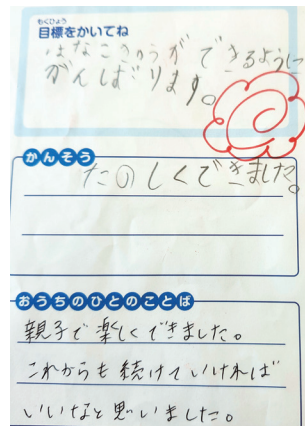 もくひょう
目標をかいてね
はなこきゅうができるように
がんばります。
かんそう
たのしくできました。
おうちのひとのことば
親子で楽しくできました。
これからも続けていければ
いいなと思いました。